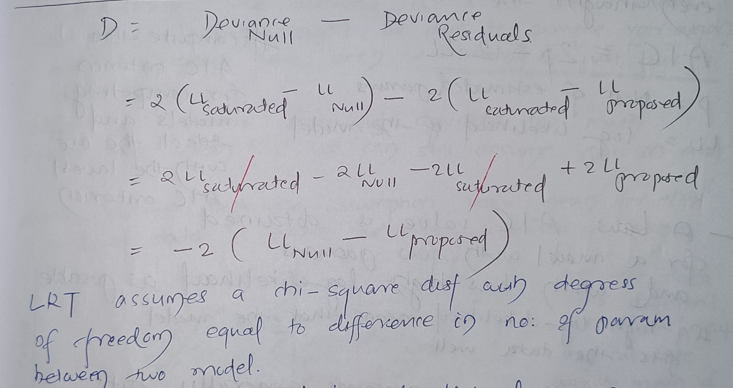 D = Deviance Null — Deviance Residuals
= 2 (LL saturated - LL Null) - 2 (LL saturated - LL proposed)
= 2 LL saturated - 2 LL Null - 2 LL saturated + 2 LL proposed
= -2 (LL Null - LL proposed)
LRT assumes a chi-square dist with degress
of freedom equal to difference in no: of param
between two model.